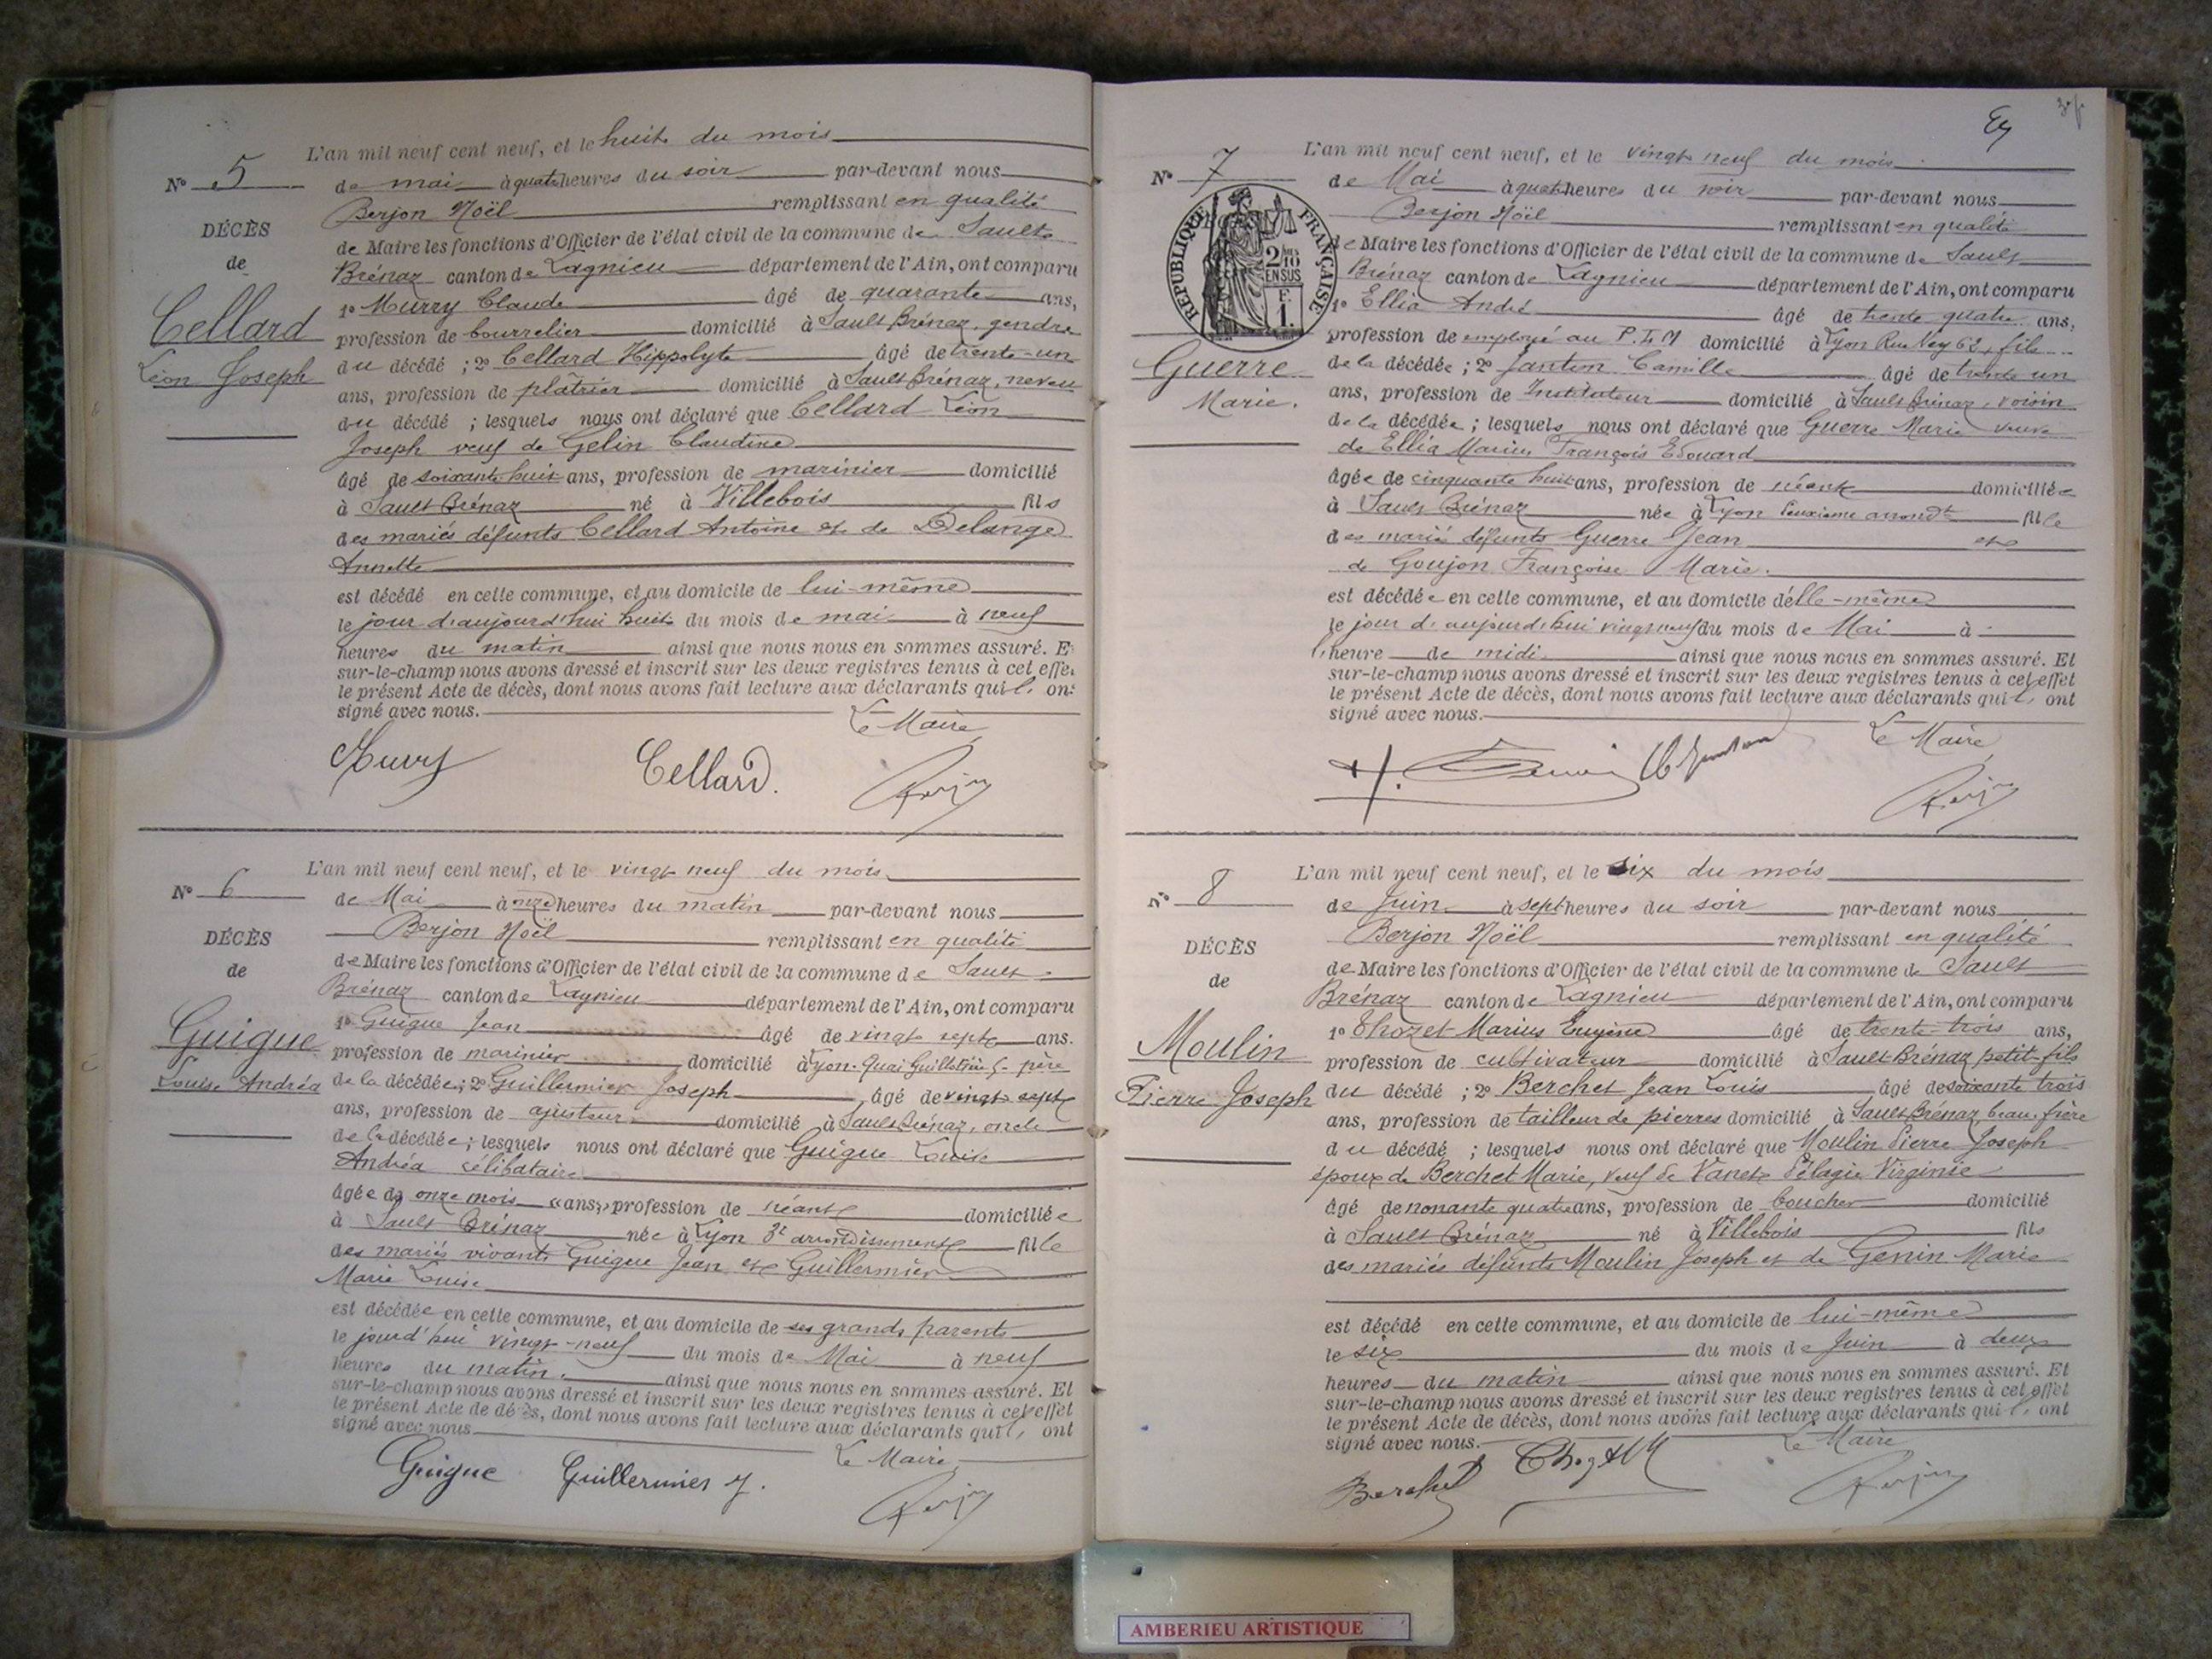 L'an mil neuf cent neuf, et le huit du mois
N° 5
de mai à quatre heures du soir par-devant nous
Berjon Noël remplissant en qualité
DÉCÈS
de Maire les fonctions d'Officier de l'état civil de la commune de Sault
de
Brénaz canton de Lagnieu département de l'Ain, ont comparu
1° Murry Claude âgé de quarante ans,
Cellard
profession de bourrelier domicilié à Sault Brénaz, gendre
Léon Joseph
du décédé ; 2° Cellard Hippolyte âgé de trente-un
ans, profession de plâtrier domicilié à Sault Brénaz, neveu
du décédé ; lesquels nous ont déclaré que Cellard Léon
Joseph veuf de Gelin Claudine
âgé de soixante huit ans, profession de marinier domicilié
à Sault Brénaz né à Villebois fils
des mariés défunts Cellard Antoine et de Delange
Annette
est décédé en cette commune, et au domicile de lui-même
le jour d'aujourd'hui huit du mois de mai à neuf
heures du matin ainsi que nous nous en sommes assuré. E
sur-le-champ nous avons dressé et inscrit sur les deux registres tenus à cet effe
le présent Acte de décès, dont nous avons fait lecture aux déclarants qui ont
signé avec nous.
Le Maire
Murry Cellard. Berjon
L'an mil neuf cent neuf, et le vingt neuf du mois
N° 6
de Mai à onze heures du matin par-devant nous
Berjon Noël remplissant en qualité
DÉCÈS
de Maire les fonctions d'Officier de l'état civil de la commune de Sault
de
Brénaz canton de Lagnieu département de l'Ain, ont comparu
1° Guigue Jean âgé de vingt sept ans.
Guigue
profession de marinier domicilié à Lyon. Quai Guillotière 5. père
Louise Andréa
de la décédée ; 2° Guillermier Joseph âgé de vingt sept
ans, profession de ajusteur domicilié à Sault Brénaz, oncle
de la décédée ; lesquels nous ont déclaré que Guigue Louise
Andréa célibataire
âgée de onze mois «ans» profession de néant domiciliée
à Sault Brénaz née à Lyon 3e arrondissement fille
des mariés vivants Guigue Jean et Guillermier
Marie Louise
est décédée en cette commune, et au domicile de ses grands parents
le jourd'hui vingt-neuf du mois de Mai à neuf
heures du matin. ainsi que nous nous en sommes assuré. Et
sur-le-champ nous avons dressé et inscrit sur les deux registres tenus à cet effet
le présent Acte de décès, dont nous avons fait lecture aux déclarants qui ont
signé avec nous
Le Maire
Guigue Guillermier J. Berjon
L'an mil neuf cent neuf, et le vingt neuf du mois
N° 7
de Mai à quatre heures du soir par-devant nous
Berjon Noël remplissant en qualité
RÉPUBLIQUE FRANÇAISE
2/10 EN SUS
F. 1.
de Maire les fonctions d'Officier de l'état civil de la commune de Sault
Brénaz canton de Lagnieu département de l'Ain, ont comparu
1° Ellia André âgé de trente quatre ans,
profession de employé au P. L M domicilié à Lyon Rue Ney 62, fils
Guerre
de la décédée ; 2° Janton Camille âgé de trente un
Marie.
ans, profession de Instituteur domicilié à Sault Brénaz, voisin
de la décédée ; lesquels nous ont déclaré que Guerre Marie veuve
de Ellia Marius François Edouard
âgée de cinquante huit ans, profession de néant domiciliée
à Sault Brénaz née à Lyon deuxieme arrondt fille
des mariés défunts Guerre Jean et
de Goujon Françoise Marie.
est décédée en cette commune, et au domicile d'elle-même
le jour d'aujourd'hui vingt neuf du mois de Mai à
l'heure de midi ainsi que nous nous en sommes assuré. Et
sur-le-champ nous avons dressé et inscrit sur les deux registres tenus à cet effet
le présent Acte de décès, dont nous avons fait lecture aux déclarants qui ont
signé avec nous.
Le Maire
Berjon
L'an mil neuf cent neuf, et le six du mois
N° 8
de Juin à sept heures du soir par-devant nous
Berjon Noël remplissant en qualité
DÉCÈS
de Maire les fonctions d'Officier de l'état civil de la commune de Sault
de
Brénaz canton de Lagnieu département de l'Ain, ont comparu
1° Chozet Marius Eugène âgé de trente-trois ans,
Moulin
profession de cultivateur domicilié à Sault Brénaz petit-fils
Pierre Joseph
du décédé ; 2° Berchet Jean Louis âgé de soixante trois
ans, profession de tailleur de pierres domicilié à Sault Brénaz, beau-frère
du décédé ; lesquels nous ont déclaré que Moulin Pierre Joseph
époux de Berchet Marie, veuf de Vanet Pélagie Virginie
âgé de nonante quatre ans, profession de boucher domicilié
à Sault Brénaz né à Villebois fils
des mariés défunts Moulin Joseph et de Genin Marie
est décédé en cette commune, et au domicile de lui-même
le six du mois de Juin à deux
heures du matin ainsi que nous nous en sommes assuré. Et
sur-le-champ nous avons dressé et inscrit sur les deux registres tenus à cet effet
le présent Acte de décès, dont nous avons fait lecture aux déclarants qui ont
signé avec nous.
Le Maire
Berchet Chozet M Berjon
AMBERIEU ARTISTIQUE